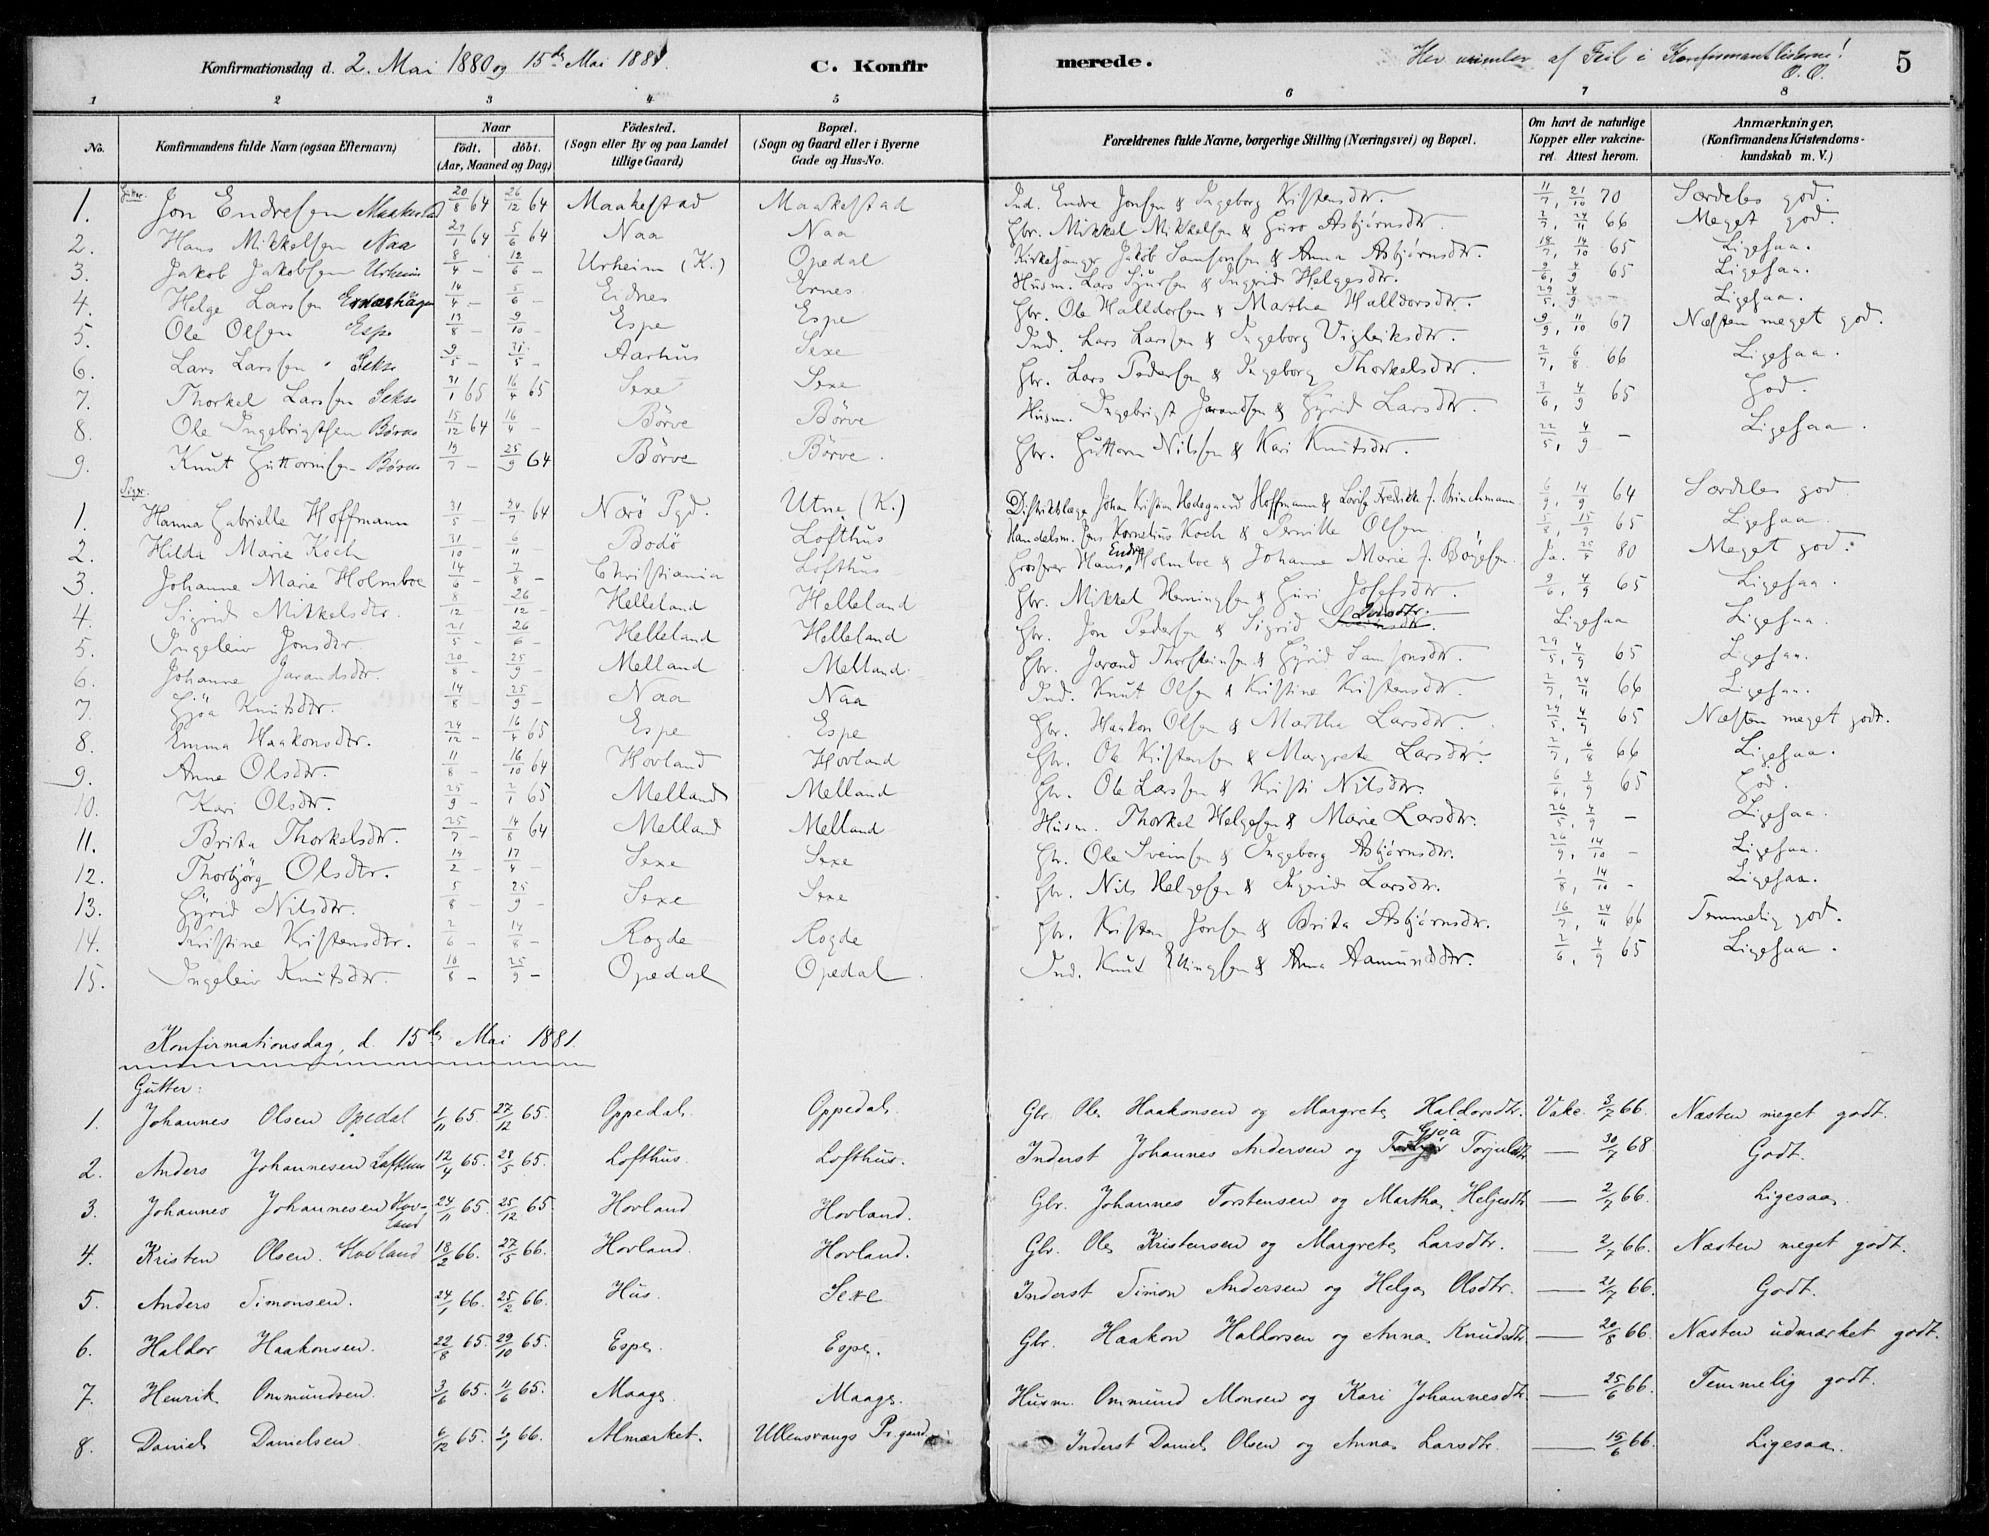 Konfirmationsdag d. 2. Mai 1880 og 15de Mai 1881. C. Konfirmerede. Her vrimler af Feil i Konfirmantlisterne! O.O. 5
1 2 3 4 5 6 7 8
No. Konfirmandens fulde Navn (ogsaa Efternavn) Naar födt. döbt. (Aar, Maaned og Dag) Födested. (Sogn eller By og paa Landet tillige Gaard) Bopæl. (Sogn og Gaard eller i Byerne Gade og Hus-No. Forældrenes fulde Navne, borgerlige Stilling (Næringsvei) og Bopæl. Om havt de naturlige Kopper eller vakcineret. Attest herom. Anmærkninger. (Konfirmandens Kristendomskundskab m. V.)
Gutter.
1. Jon Endresen Maakestad 20/8 64 26/12 64 Maakestad Maakestad Ind. Endre Jonsen & Ingeborg Kristensdtr. 11/7, 21/10 70 Særdeles god.
2. Hans Mikkelsen Naa 29/1 64 5/6 64 Naa Naa Gbr. Mikkel Mikkelsen & Guro Asbjørnsdtr. 2/7, 24/11 66 Meget god.
3. Jakob Jakobsen Urheim 8/4 - 12/6 - Urheim (K.) Opedal Kirkesanger Jakob Samsonsen & Anna Asbjørnsdtr. 18/7, 14/10 65 Ligesaa.
4. Helge Larssen 14/4 - 5/6 - Eidnes Ernes Husm. Lars Sjursen & Ingrid Helgesdtr. 9/6, 4/9 65 Ligesaa.
5. Ole Olsen Espe 13/8 - 9/10 - Espe Espe Gbr. Ole Halldorsen & Martha Halldorsdtr. 29/5, 4/9 - Ligesaa.
6. Lars Larssen Sekse 9/5 - 31/5 - Aarhus Sexe Ind. Lars Larssen & Ingeborg Vigleiksdtr. 9/9, 11/10 67 Næsten meget god.
7. Thorkel Larssen Sekse 31/1 65 16/4 65 Sexe Sexe Gbr. Lars Pedersen & Ingeborg Thorkelsdtr. 2/7, 6/8 66 Ligesaa.
8. Ole Ingebrigtsen Børve 15/12 64 16/4 - Börve Börve Husm. Ingebrigt Jarandsen & Gyrid Larsdtr. 3/6, 4/9 65 God.
9. Knut Guttormsen Børve 19/7 - 25/9 64 Börve Börve. Gbr. Guttorm Nilsen & Kari Knutsdtr. 22/5, 4/9 - Ligesaa.
Piger.
1. Hanna Gabrielle Hoffmann 31/5 - 24/7 64 Nærö Pgd. Utne (K.) Distriktslæge Johan Kristian Hedegaard Hoffmann & Lovise Fredrikke f. Brinchmann 6/9, 14/9 64 Særdeles god
2. Hilda Marie Koch 31/10 - 6/11 - Bodö Lofthus Handelsm. Jens Kornelius Koch & Pernille Olsen 5/8, 15/9 65 Ligesaa.
3. Johanne Marie Holmboe 14/6 - 7/8 - Christiania Lofthus Grosserer Hans Endre Holmboe & Johanne Marie f. Böyesen. Ja. 25/4 80 Meget god.
4. Sigrid Mikkelsdtr. 8/12 - 26/12 - Helleland Helleland Gbr. Mikkel Henningsen & Guri Josefsdtr. 9/6, 4/9 65 Ligesaa.
5. Ingeleiv Jonsdtr. 21/5 - 26/6 - Helleland Helleland Gbr. Jon Pedersen & Sigrid Ligesaa Ligesaa.
6. Johanne Jarandsdtr. 20/8 - 25/9 - Melland Melland. Gbr. Jarand Thorsteinsen & Gyrid Samsonsdtr. 29/5, 4/9 65 Ligesaa.
7. Gjöa Knutsdtr. 14/8 25/9 - Naa Naa Ind. Knut Olsen & Kristine Kristensdtr. 2/7, 24/11 66 Ligesaa.
8. Emma Haakonsdtr. 24/12 - 16/4 65 Espe Espe Gbr. Haakon Olsen & Martha Larsdtr. 29/5, 4/9 65 Næsten meget godt.
9. Anne Olsdtr. 11/8 - 16/10 64 Hovland Hovland Gbr. Ole Kristensen & Margrete Larsdtr. 2/7, 6/8 66 Ligesaa.
10. Kari Olsdtr. 25/9 - 2/1 65 Melland Melland Gbr. Ole Larssen & Kristi Nilsdtr. 6/6, 4/9 65 God.
11. Brita Thorkelsdtr. 25/7 - 14/8 64 Melland Melland Husm. Thorkel Helgesen & Marie Larsdtr. 26/5, 4/9 - Ligesaa.
12. Thorbjörg Olsdtr. 14/2 - 17/4 - Sexe Sexe Gbr. Ole Sveinsen & Ingeborg Asbjørnsdtr. 26/9, 14/10 - Ligesaa.
13. Gyrid Nilsdtr. 5/8 - 25/9 - Sexe Sexe Gbr. Nils Helgesen & Ingrid Larsdtr. 1/8, 14/10 - Ligesaa.
14. Kristine Kristensdtr. 2/6 - 14/8 - Rogde Rogde Gbr. Kristen Jonsen & Brita Asbjørnsdtr. 16/7, 24/11 66 Temmelig god.
15. Ingeleiv Knutsdtr. 10/8 - 25/9 - Opedal Opedal Ind. Knut Ellingsen & Anna Aamundsdtr. 2/6, 4/9 65 Ligesaa.
Konfirmationsdag, d. 15de Mai 1881.
Gutter:
1. Johannes Olsen Opedal 1/11 65. 27/12 65. Oppedal. Oppedal. Gbr. Ole Haakonsen og Margrete Haldorsdtr. Vakc. 3/7 66. Næsten meget godt.
2. Anders Johannesen Lofthus 12/4 65. 28/5 65. Lofthus. Lofthus. Inderst Johannes Andersen og Gjøa Torjulsdtr — 30/7 68. Godt.
3. Johannes Johannesen Hovland 24/11 65. 25/12 65. Hovland Hovland. Gbr. Johannes Torstensen og Martha Helgesdtr — 2/7 66. Ligesaa.
4. Kristen Olsen. Hovland 18/2 66. 27/5 66. Hovland. Hovland. Gbr. Ole Kristensen og Margrete Larsdtr. — 2/7 66. Næsten meget godt.
5. Anders Simonsen. 24/1 66. 25/2 66. Hus. Sexe Inderst Simon Andersen og Helga Olsdtr. — 21/7 66. Godt.
6. Haldor Haakonsen. 22/8 65. 29/10 65. Espe. Espe. Gbr. Haakon Haldorsen og Anna Knudsdtr — 20/8 66. Næsten udmærket godt.
7. Henrik Ommundsen. 3/6 65. 11/6 65. Maage. Maage. Husm. Ommund Monsen og Kari Johannesdtr — 25/6 66. Temmelig godt.
8. Daniel Danielsen 6/12 65. 4/1 66. Almærket. Ullensvangs Pr.gaard. Inderst Daniel Olsen og Anna Larsdtr. — 15/6 66. Ligesaa.